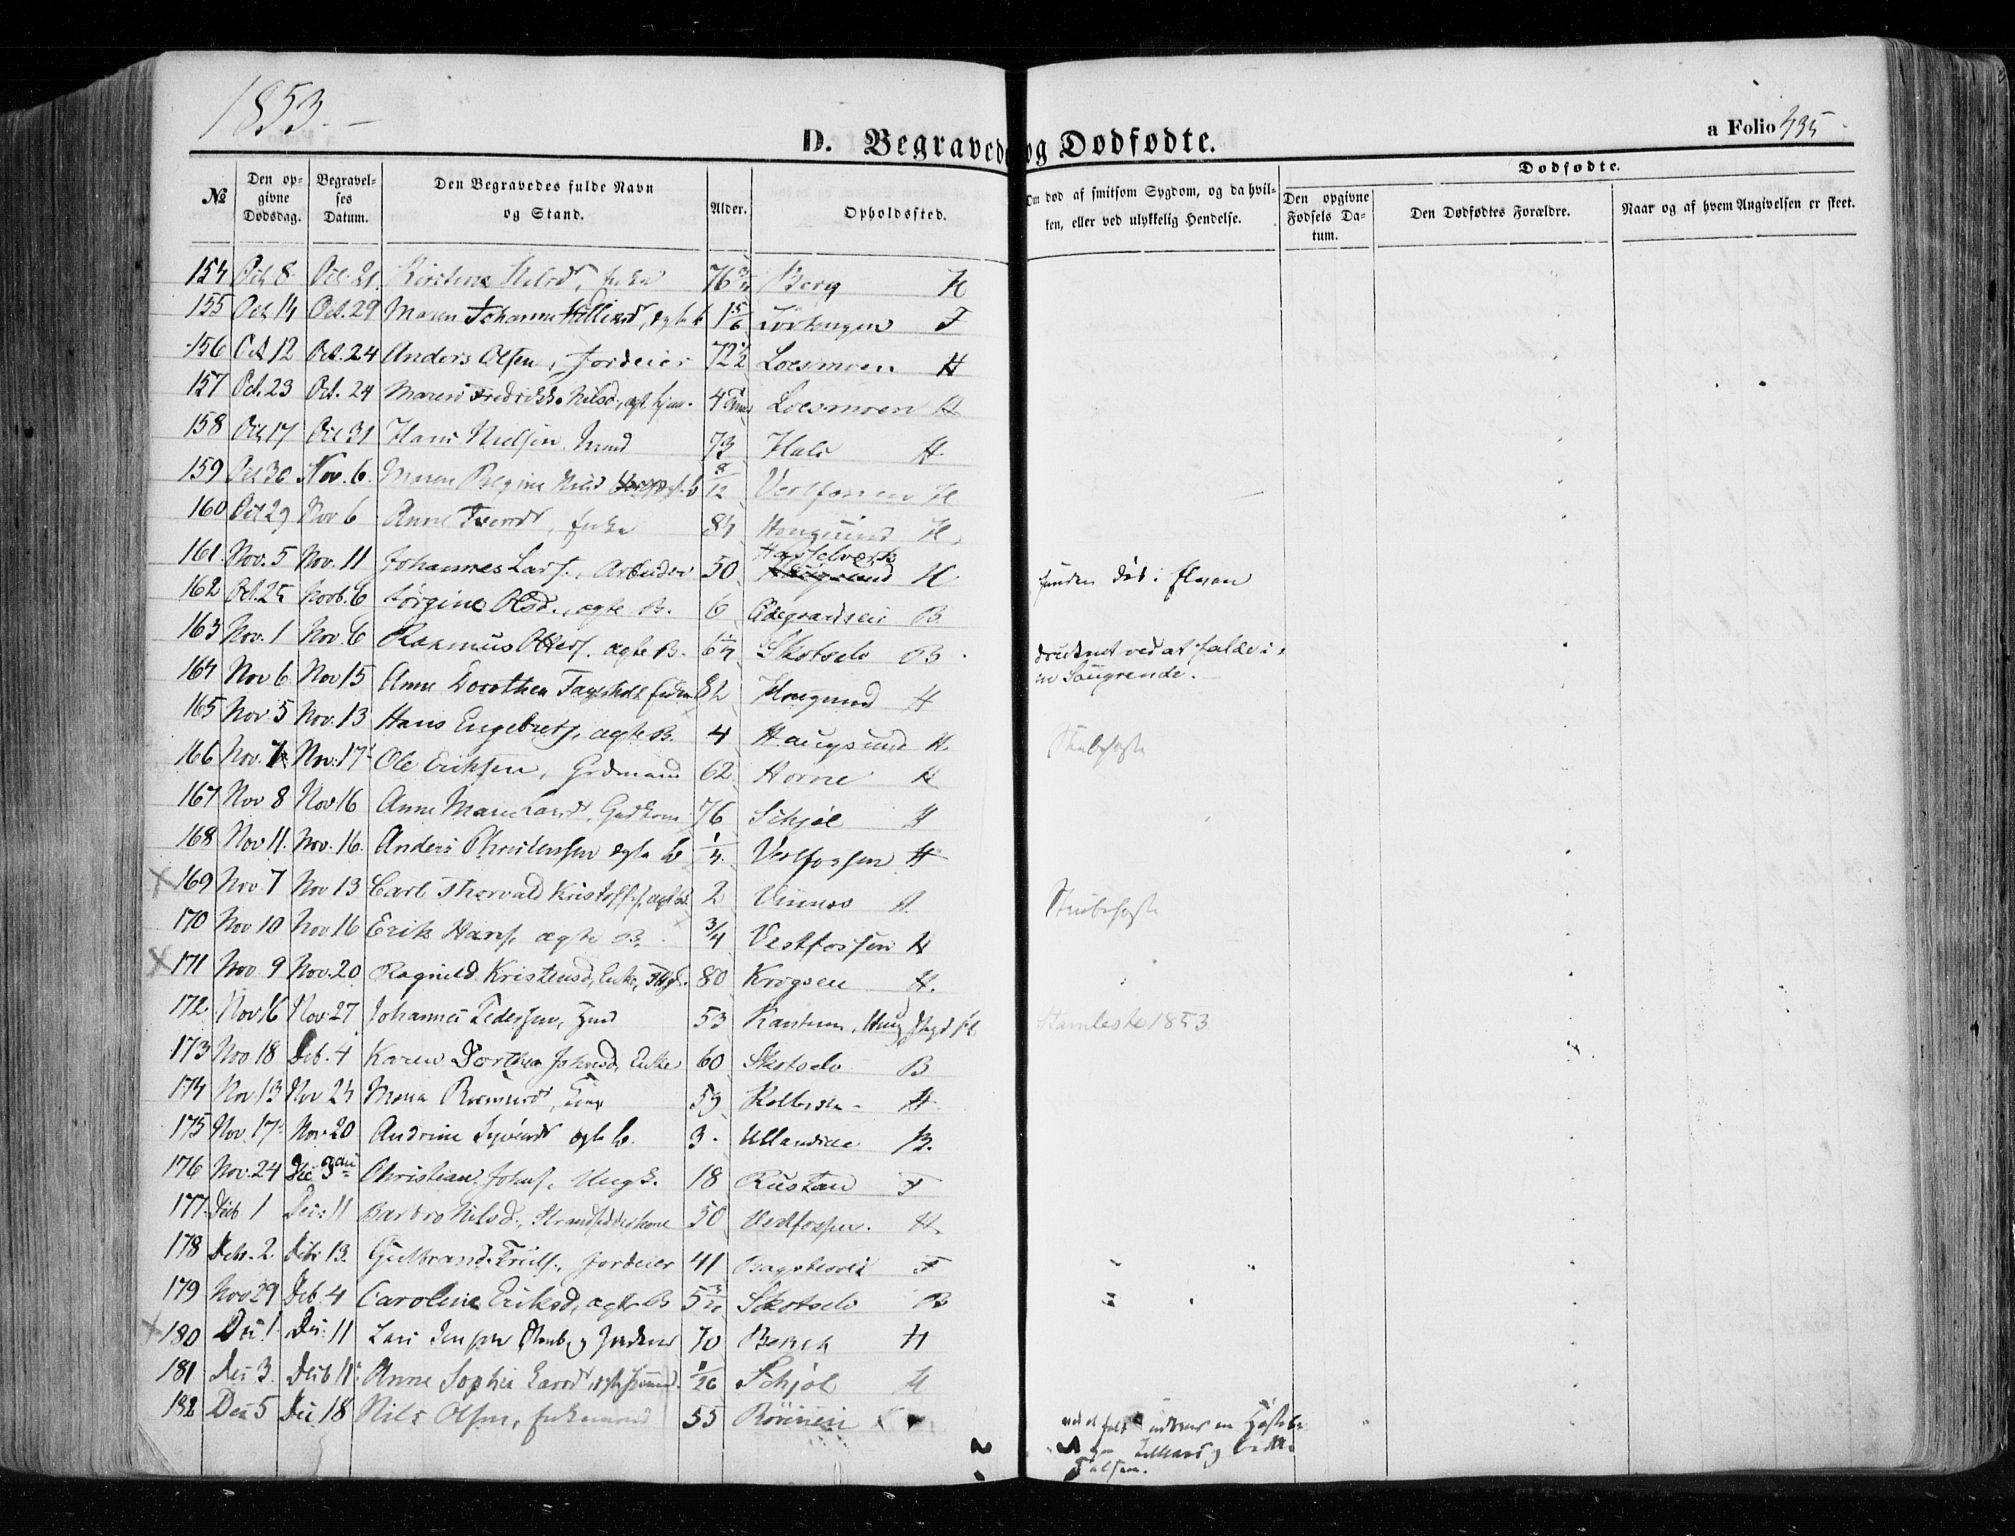 1853.
D. Begravede og Dødfødte.
a Folio 435
№
Den opgivne Dødsdag.
Begravelses Datum.
Den Begravedes fulde Navn og Stand.
Alder.
Opholdssted.
Om død af smitsom Sygdom, og da hvilken, eller ved ulykkelig Hendelse.
Dødfødte.
Den opgivne Fødsels Datum.
Den Dødfødtes Forældre.
Naar og af hvem Angivelsen er skeet.
154 Oct. 8 Oct. 21 Kirstine Nilsd., Enke 76 Berg H
155 Oct 14 Oct. 29 Maren Johanne 1 5/6 F
156 Oct 12 Oct. 24 Anders Olsen, Jordeier 72 1/2 Loesmoen H
157 Oct. 23 Oct. 29 Maren Fredrikke Nilsd., 4 Loesmoen H
158 Oct 17 Oct 31 Hans Nielsen 73 Hals H
159 Oct 30 Nov. 6. Maren Regine 8/12 Vestfossen H
160 Oct 29 Nov 6 Anne, Enke 84 Hougsund H.
161 Nov. 5 Nov. 11 Johannes Lars., Arbeider 50 Hasselverk H funden død i Elven
162 Oct. 25 Novb. 6 Jørgine Olsd., ægte B. 6 Ødegaardseie B
163 Nov. 1 Nov 6 Rasmus Otters. ægte B. 6 1/4 Skotselv B druknet ved at falde i en Saugrende.
164 Nov 6 Nov 15 Anne Dorothea, Enke 82 Hougsund H
165 Nov 5 Nov. 13 Hans Engebrets, ægte B. 4 Haugsund H. Strubehoste
166 Nov. 7 Nov. 17 Ole Eriksen, Grdmand 62 Horne H
167 Nov 8 Nov 16 Anne Marie Larsd., Grdkone 76 Schjøl H
168 Nov 11. Nov. 16. Anders Christensen ægte B 1/4 Vestfossen H
169 Nov. 7 Nov 13 Carl Thorvald Kristoffs., ægte B. 2 H. Strubehoste
170 Nov 10 Nov 16 Erik Hans., ægte B. 3/4 Vestfossen H
171 Nov. 9 Nov. 20 Ragnild Kristensd., Enke, 80 Krogsen H.
172 Nov 16 Nov 27 Johannes Pedersen, 53 Stamliste 1853
173 Nov. 18 Deb. 4 Karen Dorthea Johnsd, Enke 60 Skotselv B
174 Nov 13 Nov 24 59 H
175 Nov. 17 Nov 20 Andrine ægte B. 3. B.
176 Nov. 24 Dec Christian Johns., Ungk. 18 Rustan F
177 Decb 1 Dec. 11 Barbro Nilsd., Strandsidderkone 50 Vestfossen. H.
178 Deb. 2 Deb. 13. Gulbrand Truls., Jordeier 41 F
179 Nov 29 Deb. 4 Caroline Eriksd, ægte B 5 Skotselv B
180 Dec. 1. Dec. 11 Lars 70 H
181 Dec 3. Decb 11. Anne Sophie 1/26 Schjøl H
182 Dec 5 Dec 18 Nils Olsen, Enkemand 55